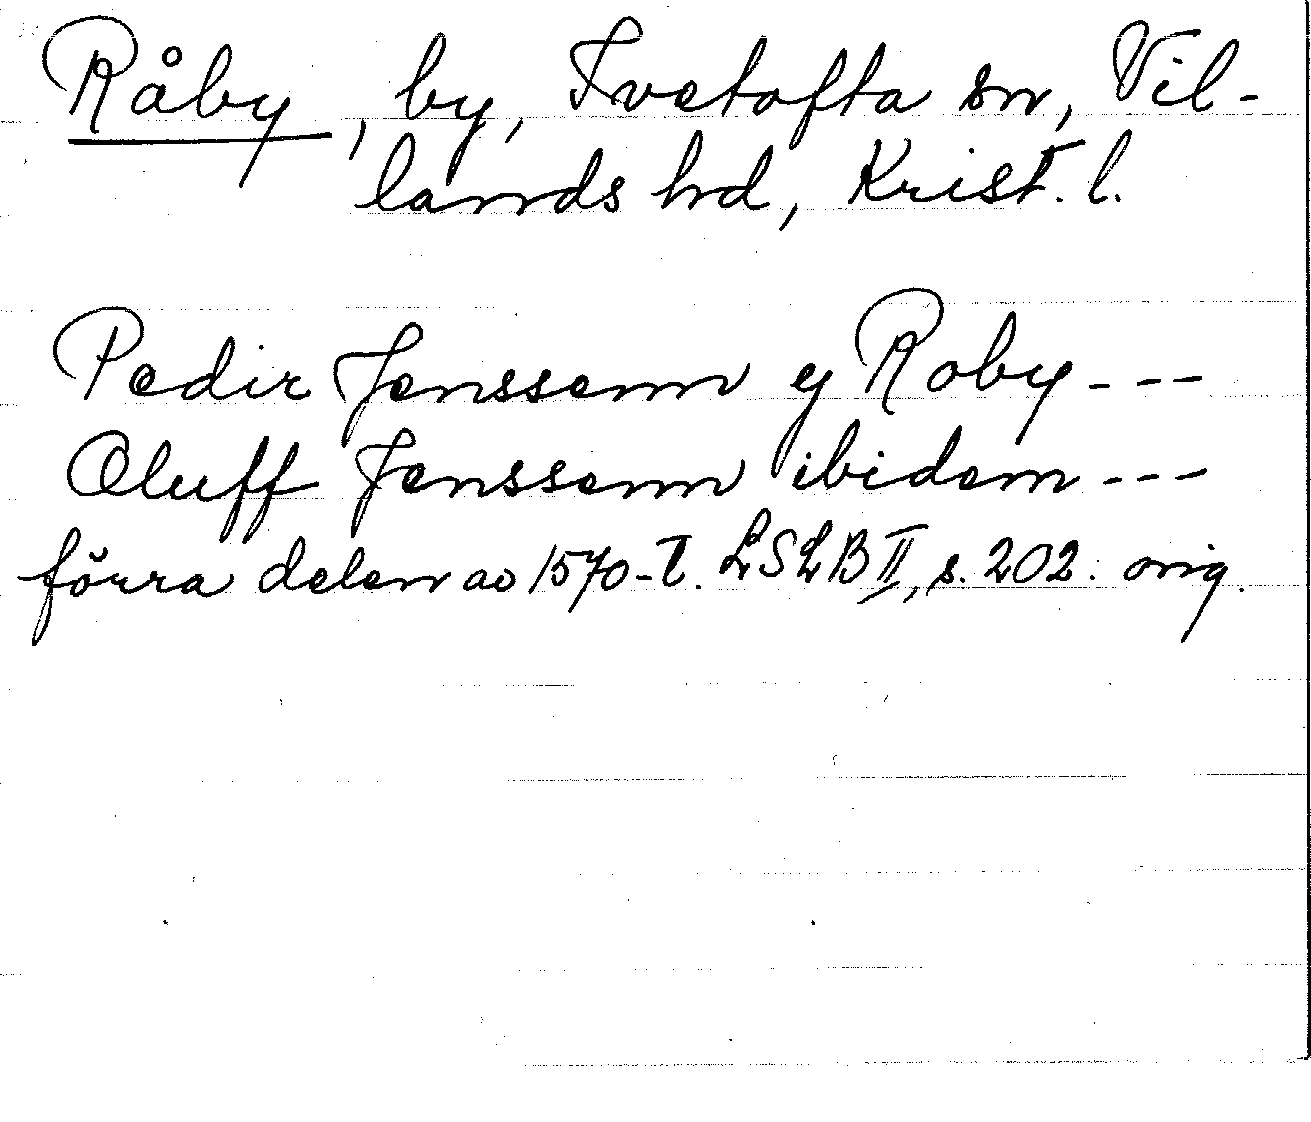 Råby, by, Ivetofta sn, Vil-
lands hd, Krist. l.
Pedir Jenssenn y Roby ---
Oluff Jenssenn ibidem ---
förra delen av 1570-t. LSLB II, s. 202. orig.